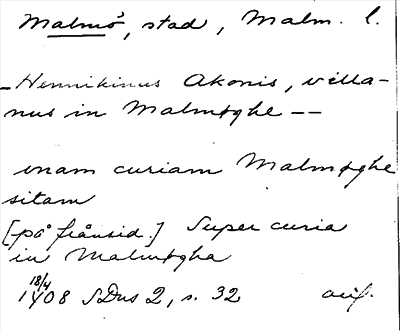 Malmö, stad, Malm. l.
– Hennikinus Akonis, villa-
nus in Malmøghe – –
unam curiam Malmøghe
sitam
[på frånsid.] Super curia
in Malmøgha
18/4
1408 SDns 2, s. 32 avf.